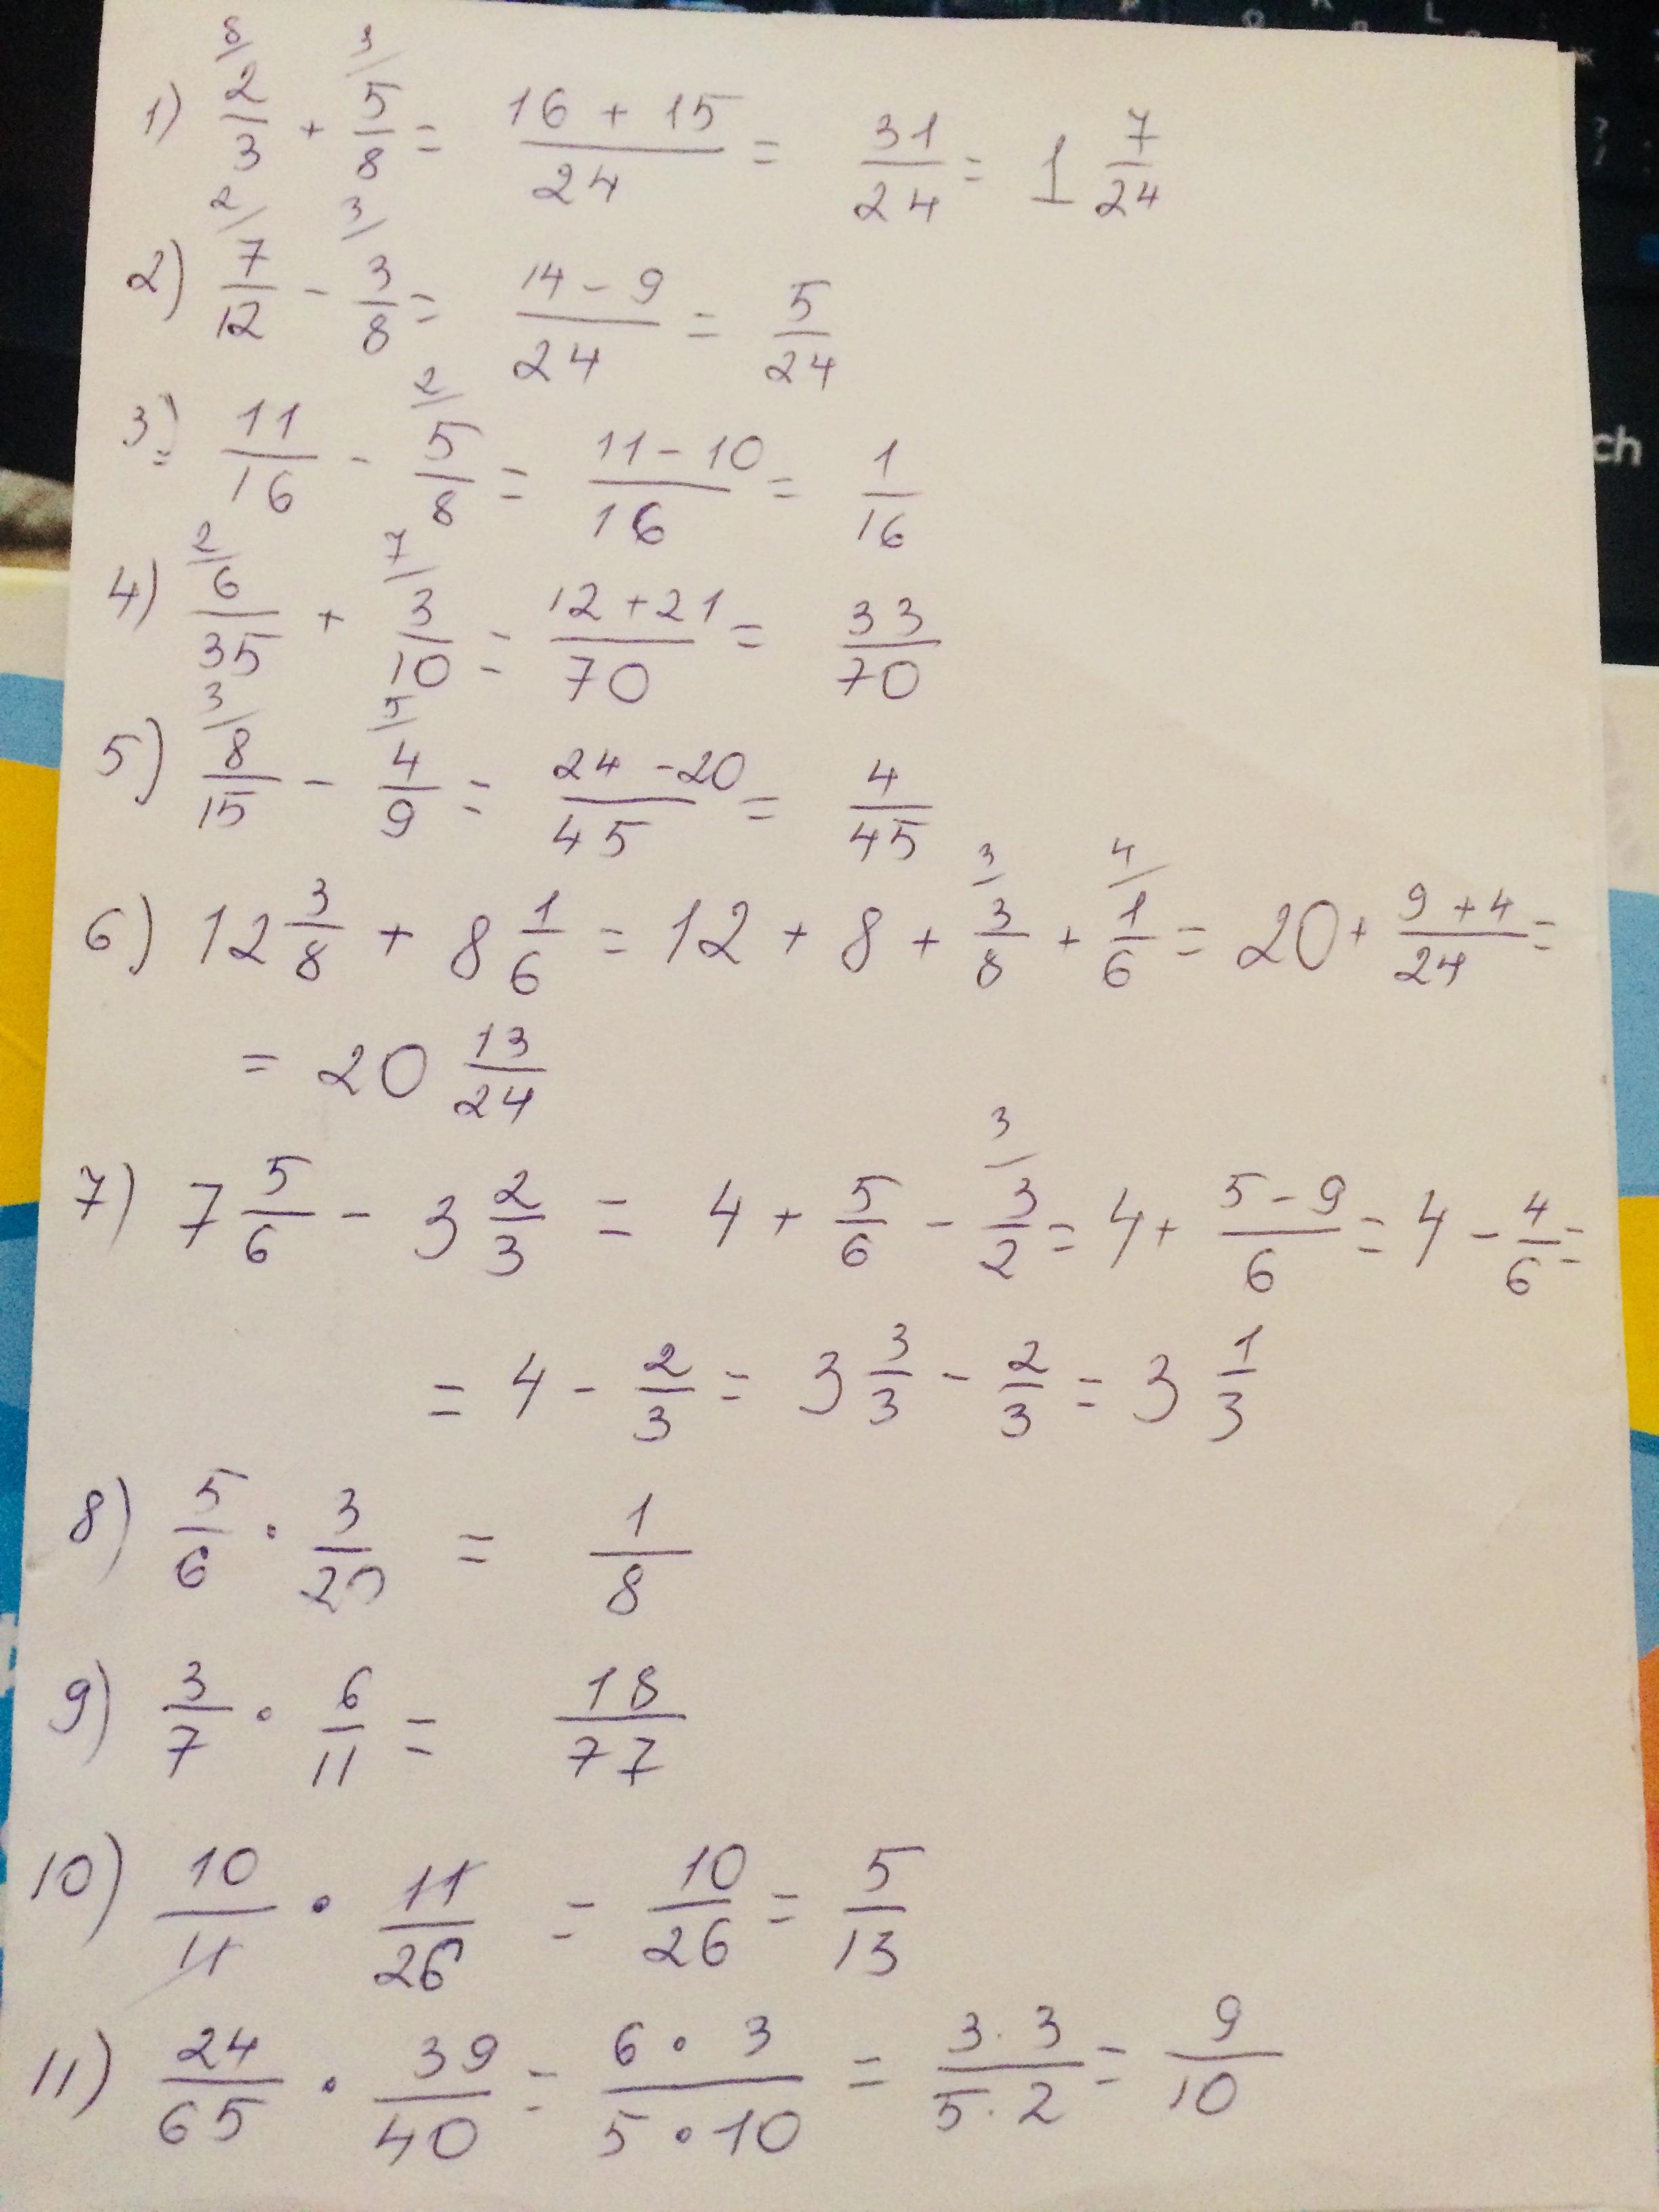 8/ 3/
1) 2/3 + 5/8 = (16 + 15)/24 = 31/24 = 1 7/24
2/ 3/
2) 7/12 - 3/8 = (14 - 9)/24 = 5/24
2/
3) 11/16 - 5/8 = (11 - 10)/16 = 1/16
2/ 7/
4) 6/35 + 3/10 = (12 + 21)/70 = 33/70
3/ 5/
5) 8/15 - 4/9 = (24 - 20)/45 = 4/45
3/ 4/
6) 12 3/8 + 8 1/6 = 12 + 8 + 3/8 + 1/6 = 20 + (9 + 4)/24 =
= 20 13/24
3/
7) 7 5/6 - 3 2/3 = 4 + 5/6 - 3/2 = 4 + (5 - 9)/6 = 4 - 4/6 =
= 4 - 2/3 = 3 3/3 - 2/3 = 3 1/3
8) 5/6 · 3/20 = 1/8
9) 3/7 · 6/11 = 18/77
10) 10/11 · 11/26 = 10/26 = 5/13
11) 24/65 · 39/40 = (6 · 3)/(5 · 10) = (3 · 3)/(5 · 2) = 9/10
ch